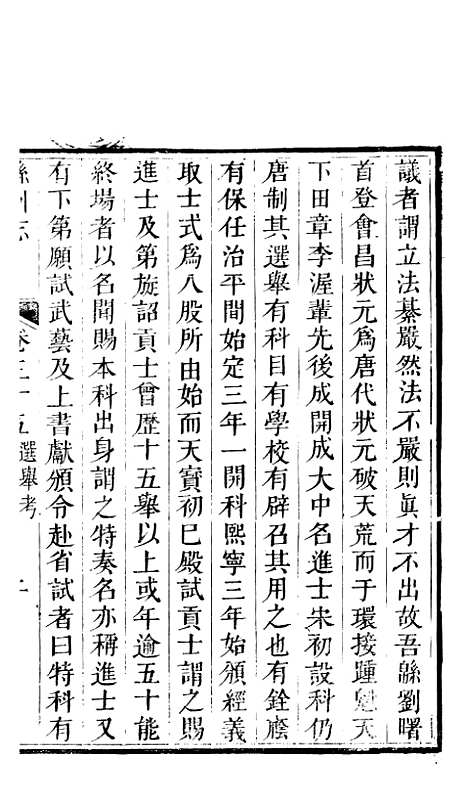 議者謂立法綦嚴然法不嚴則眞才不出故吾緜劉曙
首登會昌狀元爲唐代狀元破天荒而于環接踵魁天
下田章李渥輩先後成開成大中名進士宋初設科仍
唐制其選舉有科目有學校有辟召其用之也有銓廕
有保任治平間始定三年一開科熙寧三年始頒經義
取士式爲八股所由始而天寶初巳殿試貢士謂之賜
進士及第旋詔貢士曾歷十五舉以上或年逾五十能
終場者以名開賜本科出身謂之特奏名亦稱進士又
有下第願試武藝及上書獻頒令赴省試者曰特科有
緜州志 卷三十五 選舉考 二